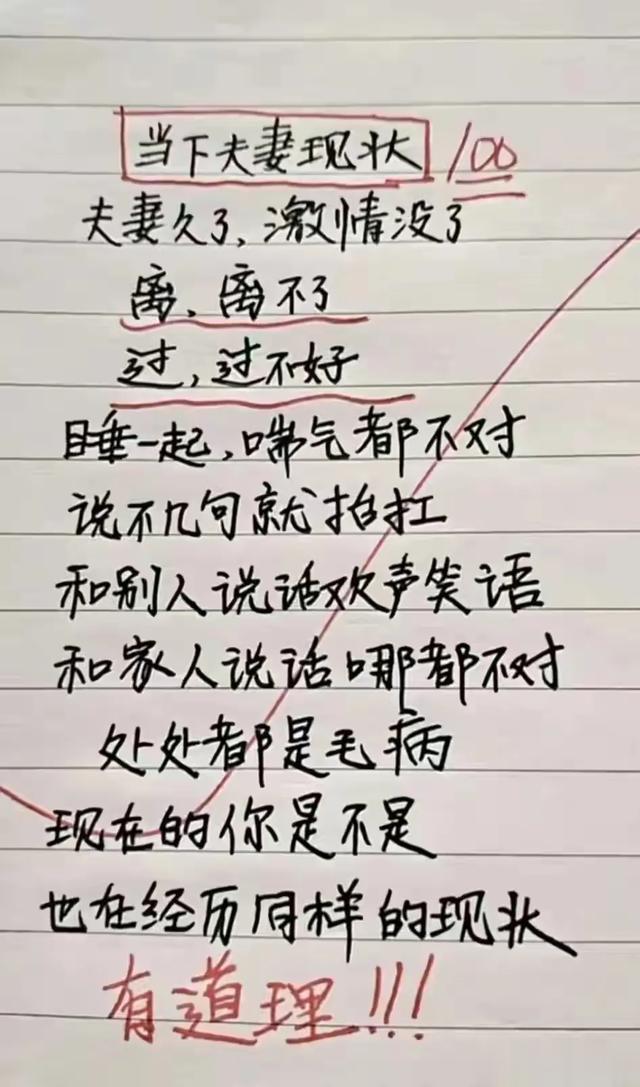 当下夫妻现状 100
夫妻久了,激情没了
离、离不了
过,过不好
睡一起,喘气都不对
说不几句就抬扛
和别人说话欢声笑语
和家人说话哪都不对
处处都是毛病
现在的你是不是
也在经历同样的现状
有道理!!!